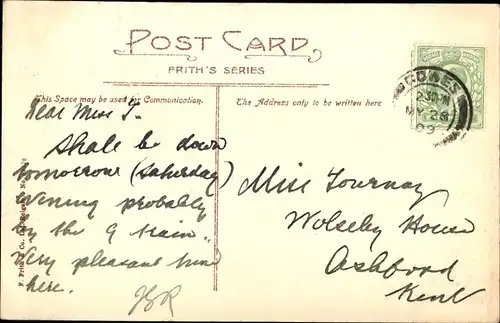 POST CARD
FRITH'S SERIES
This Space may be used for Communication.
The Address only to be written here
COWES
2.30 PM
MY 28
09
Dear Miss T.
Shall be down
tomorrow (Saturday)
evening probably
by the 9 train.
Very pleasant time
here.
JBR
Miss Tournay
Wolseley House
Ashford
Kent